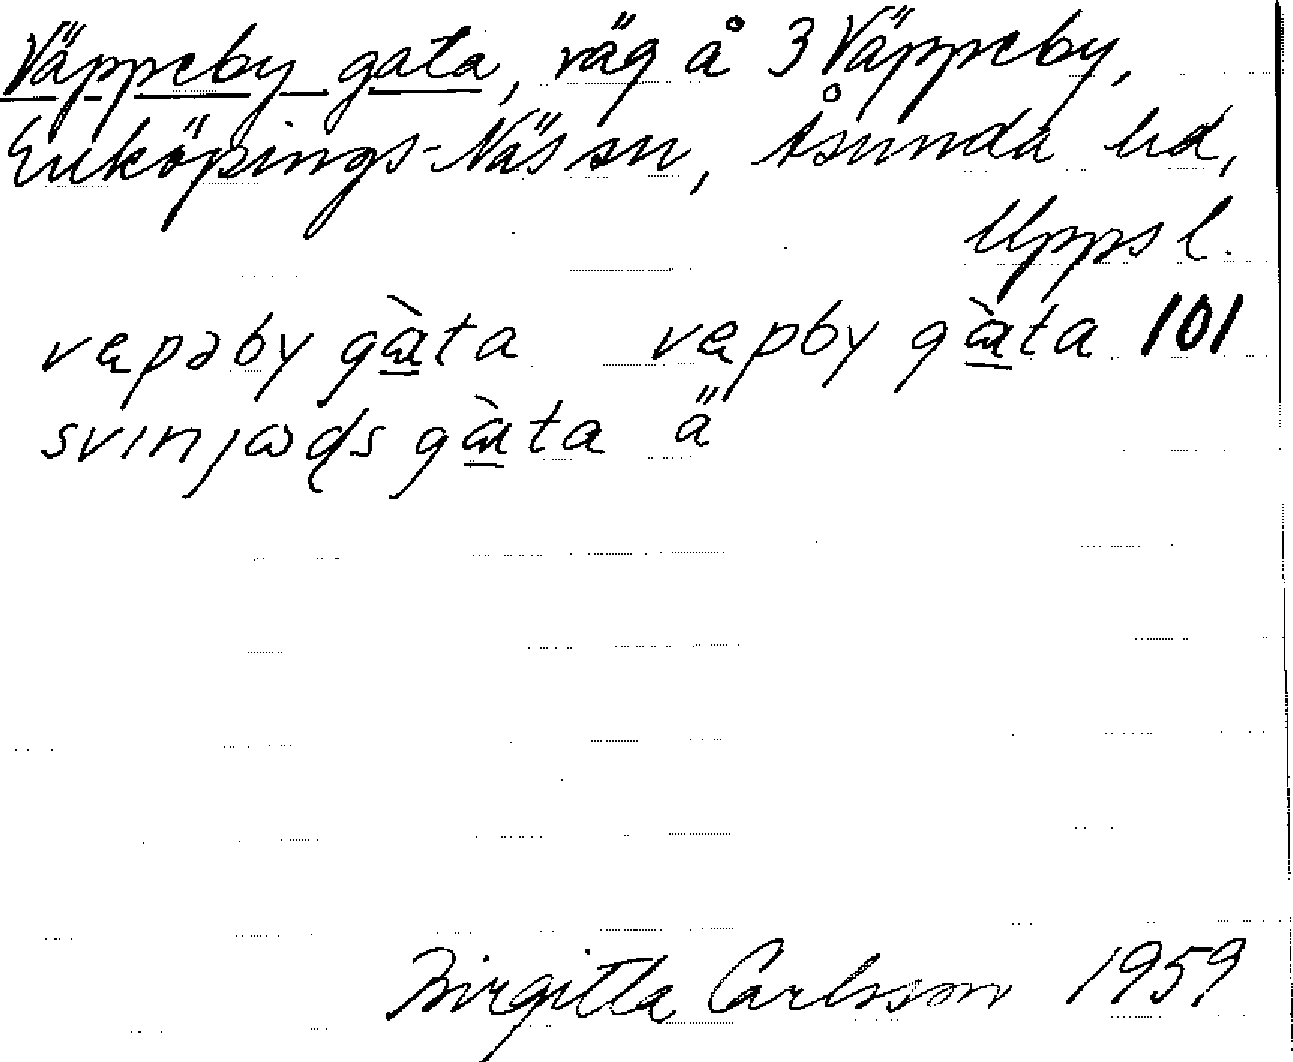 Väppeby gata, väg å 3 Väppeby,
Enköpings-Näs sn, Åsunda hd,
Upps l.
vepəby gàta vepby gàta 101
svinjɷds gàta ä
Birgitta Carlsson 1959